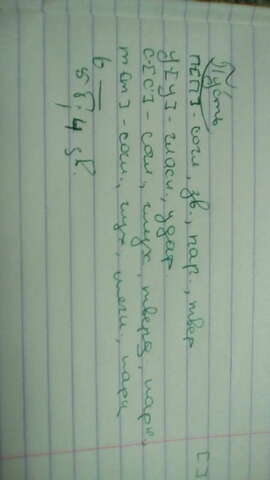 Пусть [ ]
п[п] - согл, зв., пар., твер
у[у] - гласн., удар
с[с] - согл., глух, тверд, парн,
т[т] - согл., глух., мягк., парн
ь —
5 б., 4 зв.